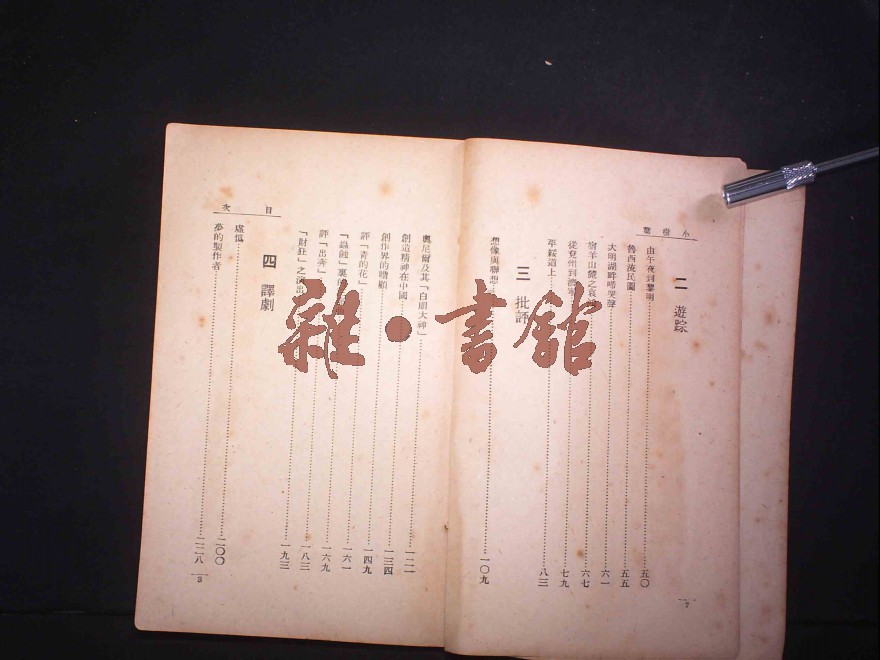 小樹葉
二 遊踪
由午夜到黎明……五〇
魯西流民圖……五五
大明湖畔啼哭聲……六一
宿羊山鎮之哀……六七
從兗州到濟寧……七九
平綏道上……八三
三 批評
想像與聯想……一〇九
2
目次
奧尼爾及其「白朗大神」……一二一
創造精神在中國……一三四
創作界的瞻顧……一四九
評「青的花」……一六一
「蟲蝕」裏……一六九
評「出奔」……一八三
「財狂」之演出……一九三
四 譯劇
虛惶……二〇〇
夢的製作者……二二八
3
雜·書舘